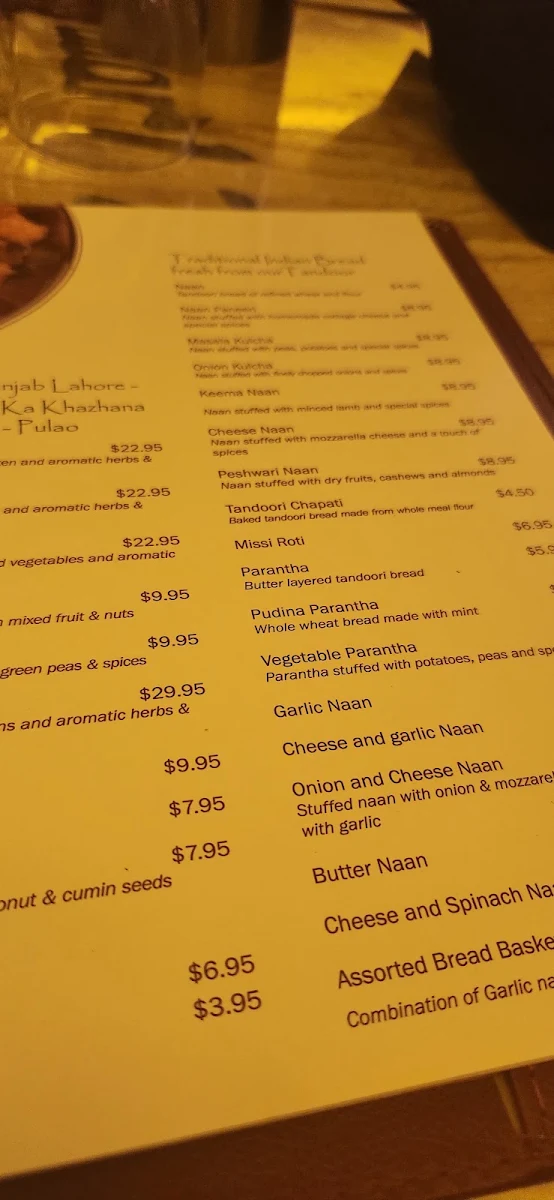 njab Lahore -
Ka Khazhana
- Pulao
$22.95
en and aromatic herbs &
$22.95
and aromatic herbs &
$22.95
d vegetables and aromatic
$9.95
n mixed fruit & nuts
$9.95
green peas & spices
$29.95
ns and aromatic herbs &
$9.95
$7.95
$7.95
onut & cumin seeds
$6.95
$3.95
Traditional Indian Bread
fresh from our Tandoor
Naan
Tandoori bread of refined wheat and flour
Naan Paneer
Naan stuffed with homemade cottage cheese and
special spices
Masala Kulcha
Naan stuffed with peas, potatoes and special spices
$8.95
Onion Kulcha $8.95
Naan stuffed with finely chopped onions and spices
Keema Naan $8.95
Naan stuffed with minced lamb and special spices
Cheese Naan $8.95
Naan stuffed with mozzarella cheese and a touch of
spices
Peshwari Naan $8.95
Naan stuffed with dry fruits, cashews and almonds
Tandoori Chapati $4.50
Baked tandoori bread made from whole meal flour
Missi Roti $6.95
Parantha $5.9
Butter layered tandoori bread
Pudina Parantha
Whole wheat bread made with mint
Vegetable Parantha
Parantha stuffed with potatoes, peas and spe
Garlic Naan
Cheese and garlic Naan
Onion and Cheese Naan
Stuffed naan with onion & mozzarel
with garlic
Butter Naan
Cheese and Spinach Naa
Assorted Bread Baske
Combination of Garlic na